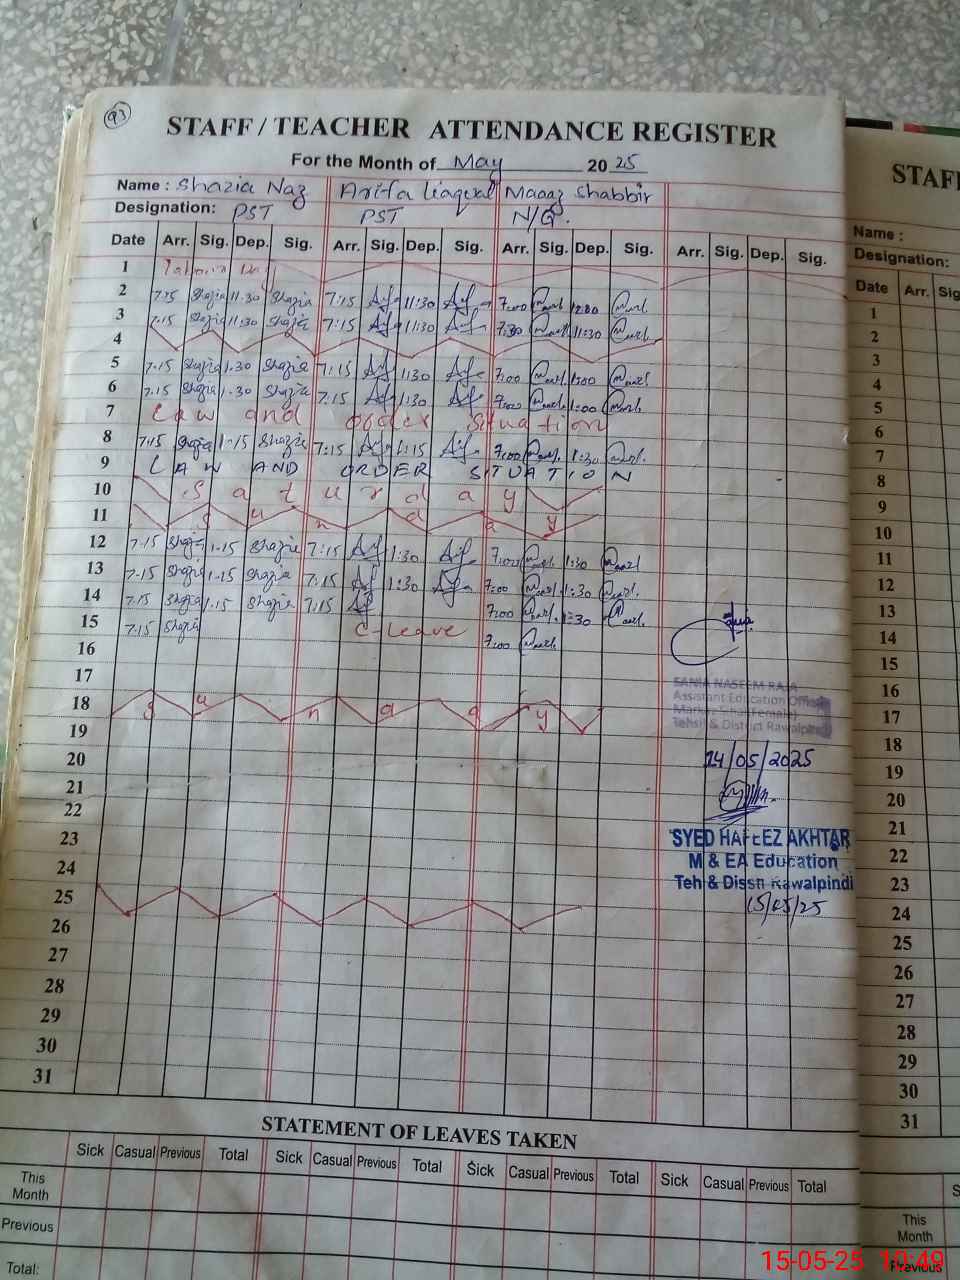 93
STAFF / TEACHER ATTENDANCE REGISTER
For the Month of May 2025
Name : Shazia Naz Arifa Liaqat Maaaz Shabbir
Designation: PST PST N/Q.
Date Arr. Sig. Dep. Sig. Arr. Sig. Dep. Sig. Arr. Sig. Dep. Sig. Arr. Sig. Dep. Sig.
1 Labour Day
2 7:15 Shazia 11:30 Shazia 7:15 11:30 7:00 12:00
3 7:15 Shazia 11:30 Shazia 7:15 11:30 7:30 11:30
4
5 7.15 Shazia 1.30 Shazia 7:15 1:30 7:00 1:00
6 7.15 Shazia 1.30 Shazia 7:15 1:30 7:00 1:00
7 Law and order Situation
8 7:15 Shazia 1-15 Shazia 7:15 1:15 7:00 1:30
9 LAW AND ORDER SITUATION
10 Saturday
11 Sunday
12 7.15 Shazia 1.15 Shazia 7:15 1:30 7:00 1:30
13 7.15 Shazia 1.15 Shazia 7:15 1:30 7:00 1:30
14 7.15 Shazia 1.15 Shazia 7:15 7:00 1:30
15 7.15 Shazia C-leave 7:00
16
17
18 Sunday
19
20
21
22
23
24
25
26
27
28
29
30
31
SANIA NASEEM RAJA
Assistant Education Officer
(Female)
Tehsil & District Rawalpindi
14/05/2025
SYED HAFEEZ AKHTAR
M & EA Education
Teh & Disst: Rawalpindi
15/05/25
STATEMENT OF LEAVES TAKEN
Sick Casual Previous Total Sick Casual Previous Total Sick Casual Previous Total Sick Casual Previous Total
This Month
Previous
Total:
STAF
Name :
Designation:
Date Arr. Sig
1
2
3
4
5
6
7
8
9
10
11
12
13
14
15
16
17
18
19
20
21
22
23
24
25
26
27
28
29
30
31
S
This Month
Previous
15-05-25 10:49